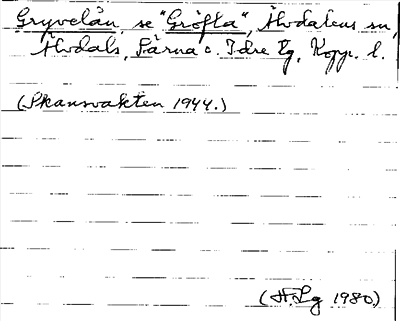 Gryvelån, se "Gröfla", Älvdalens sn,
Älvdals, Särna o. Idre tg, Kopp. l.
(Skansvakten 1944.)
(H.Lg 1980)